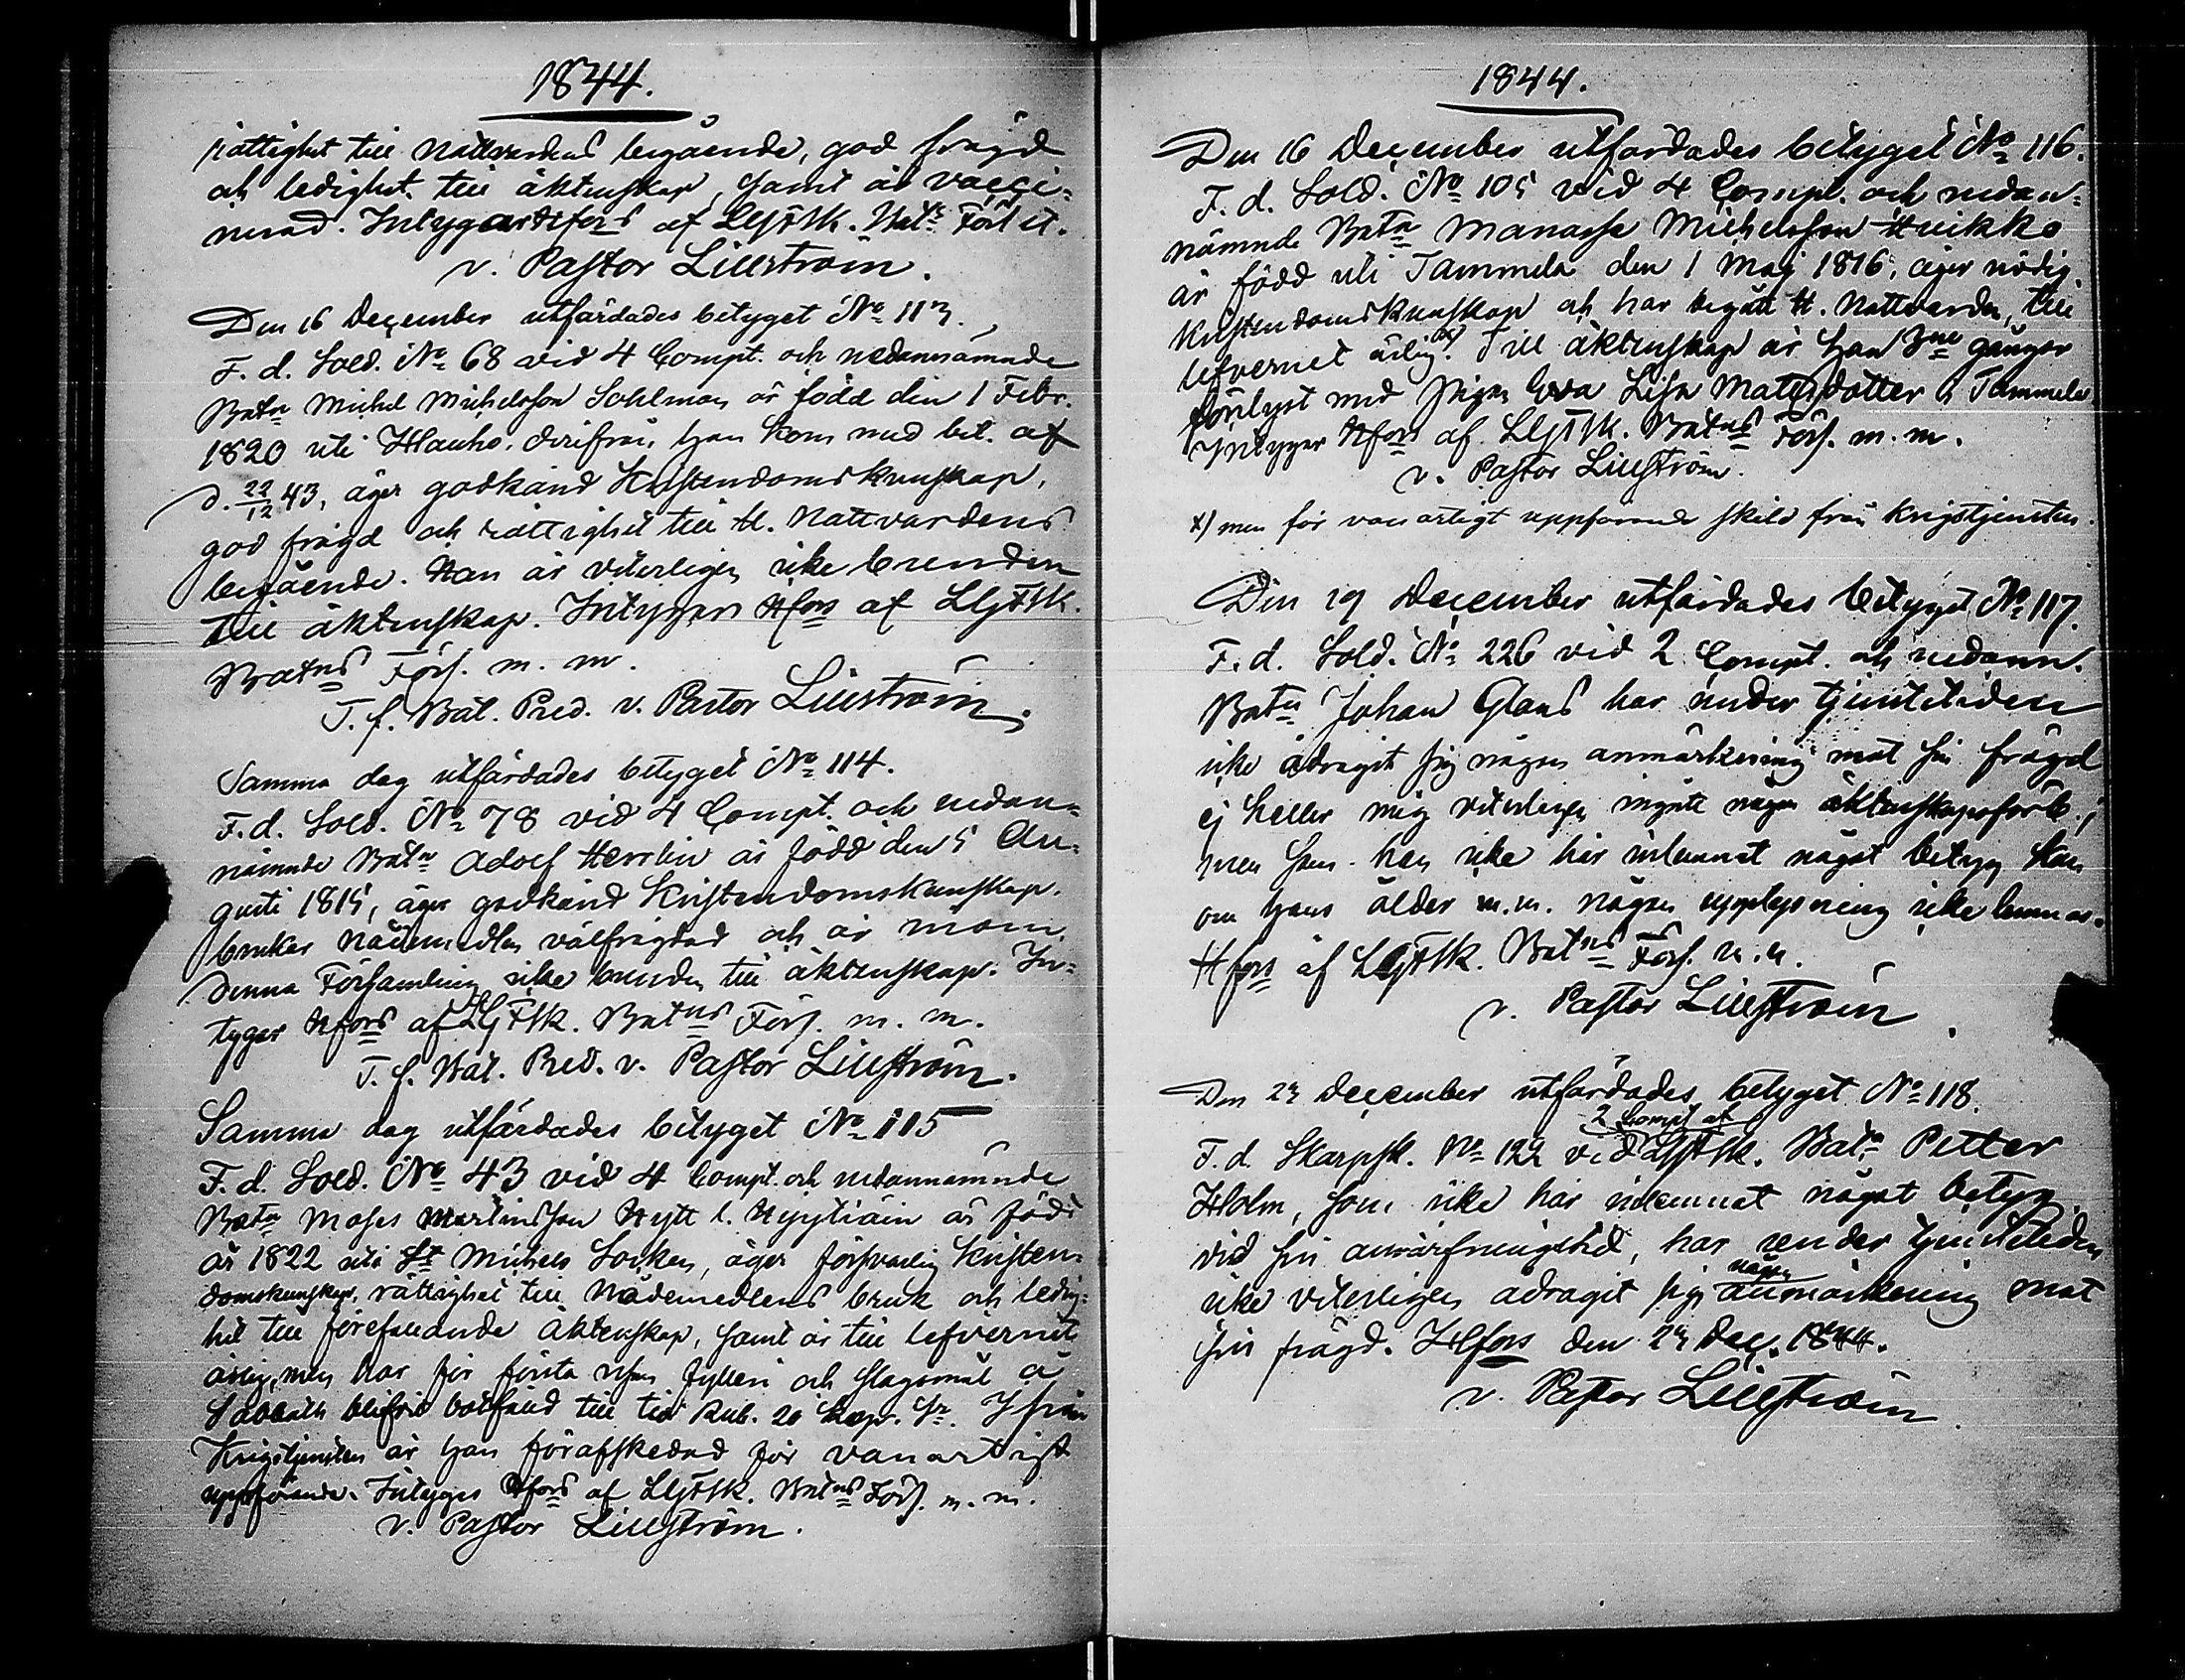 1844.
rättighet till Nattvardens begående, god frägd
och ledighet till äktenskap, samt är vacci-
nerad. Intygar Hfors af LGFSk. Batns Förs. et.
v. Pastor Lillström.
Den 16 December utfärdades betyget No 113.
F. d. Sold. No 68 vid 4 Compt. och nedannämnde
Batn Michel Michelsson Sohlman är född den 1 Febr.
1820 uti Hauho, derifrån han kom med bet. af
d. 22/12 43, äger godkänd Kristendomskunskap,
god frägd och rättighet till H. Nattvardens
begående. Han är veterligen icke bunden
till äktenskap. Intygar Hfors af LGFSk.
Batns Förs. m. m.
T. f. Bat. Pred. v. Pastor Lillström.
Samma dag utfärdades betyget No 114.
F. d. Sold. No 78 vid 4 Compt. och nedan-
nämnde Batn Adolf Herrlin är född den 5 Au-
gusti 1815, äger godkänd Kristendomskunskap,
brukar nådemedlen välfrägdad och är inom
denna Församling icke bunden till äktenskap. In-
tygar Hfors af LGFSk. Batns Förs. m. m.
T. f. Bat. Pred. v. Pastor Lillström.
Samma dag utfärdades betyget No 115
F. d. Sold. No 43 vid 4 Compt. och nedannämnde
Batn Moses Martinsson Hytt l. Hyytiäin är född
år 1822 uti St Michels Socken, äger försvarlig Kristen-
domskunskap, rättighet till Nådemedlens bruk och ledig-
het till förefallande äktenskap, samt är till lefvernet
ärlig, men har för första resan fylleri och slagsmål å
Sabbath blifvit botfäld till tio Rub. 20 Kop. Sr. Ifrån
Krigstjensten är han förafskedad för vanartigt
uppförande. Intygas Hfors af LGFSk. Batns Förs. m. m.
v. Pastor Lillström.
1844.
Den 16 December utfärdades betyget No 116.
F. d. Sold. No 105 vid 4 Compt. och nedan-
nämnde Batn Manasse Michelsson Huikko
är född uti Tammela den 1 Maj 1816, äger nödig
Kristendomskunskap och har begått H. Nattvarden, till
lefvernet ärlig x). Till äktenskap är han 3ne gånger
förelyst med Pigan Eva Lisa Mattsdotter i Tammela
Intygar Hfors af LGFSk. Batns Förs. m. m.
v. Pastor Lillström.
x) men för vanartigt uppförande skild från Krigstjensten.
Den 19 December utfärdades betyget No 117.
F. d. Sold. No 226 vid 2 Compt. och nedann.
Batn Johan Glans har under tjenstetiden
icke ådragit sig någon anmärkning mot sin frägd
ej heller mig veterligen ingått någon äktenskapsförb.;
men som han icke här inlemnat något betyg kan
om hans ålder m. m. någon upplysning icke lemnas.
Hfors af LGFSk. Batns Förs. m. m.
v. Pastor Lillström.
Den 23 December utfärdades betyget No 118.
2 Compt af
F. d. Skarpsk. No 122 vid LGFSk. Batn Petter
Holm, som icke här inlemnat något betyg
vid sin anvärfningstid, har under tjenstetiden
någon
icke veterligen ådragit sig anmärkning mot
sin frägd. Hfors den 23 Dec. 1844.
v. Pastor Lillström.